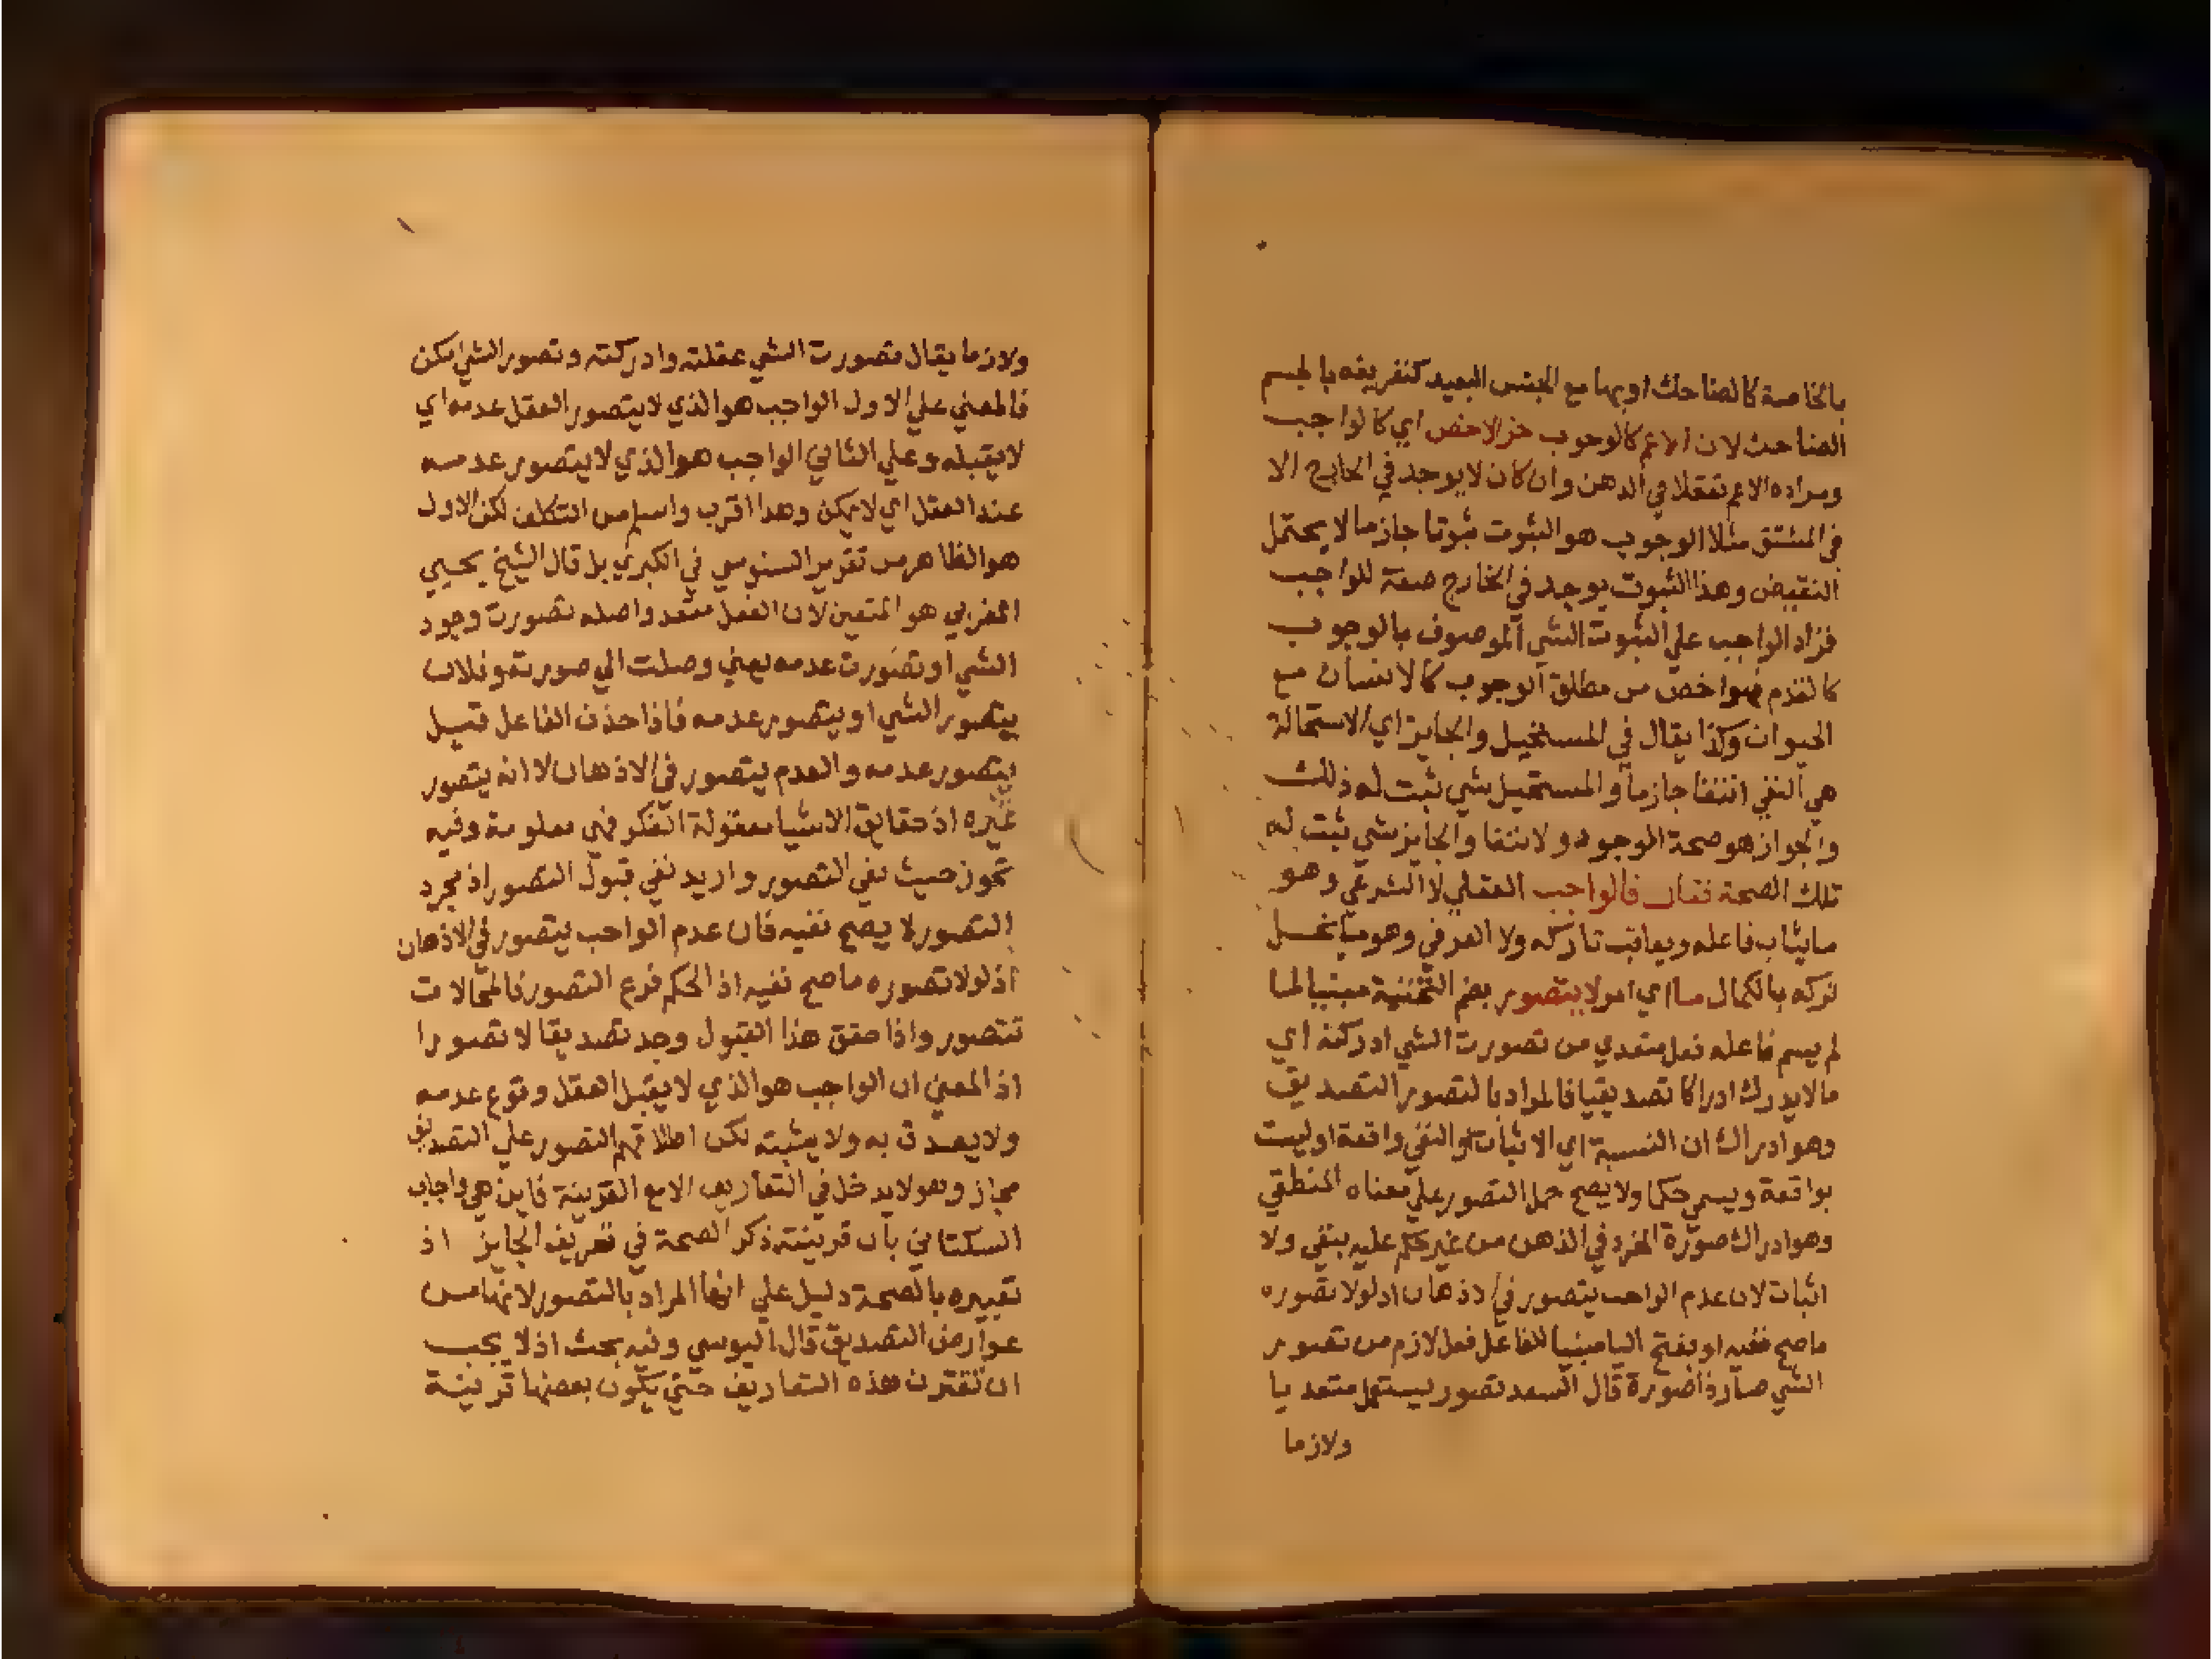 بالخاصة كالضاحك او بها مع الجنس البعيد كتعريفه بالجسم
الضاحك لان الاعم كالوجوب جزالاخص اي كالواجب
ومراده الاعم تعقلا في الدهن وان كان لا يوجد في الخارج الا
في المشتق مثلا الوجوب هو الثبوت ثبوتا جازما لا يحتمل
النقيض وهذا الثبوت يوجد في الخارج صفة للواجب
فزاد الواجب علي الثبوت الشي الموصوف بالوجوب
كالقدم فهو اخص من مطلق الوجوب كالانسان مع
الحيوان وكذا يقال في المستحيل والجايز اي الاستحالة
هي النفي انتفا جازما والمستحيل شي ثبت له ذلك
والجواز هو صحة الوجود ولانتفا والجايز شي ثبت له
تلك الصحة فقال فالواجب العقلي لا الشرعي وهو
مايثاب فاعله ويعاقب تاركه ولا العرفي وهو ما يخل
تركه بالكمال ما اي امر لا يتصور بضم التحتية مبنيا لما
لم يسم فاعله فعل متعدي من تصورت الشي ادركته اي
مالا يدرك ادراكا تصديقيا فالمراد بالتصور التصديق
وهو ادراك ان النسبة اي الاثبات او النفي واقعة او ليست
بواقعة ويسمي حكما ولا يصح حمل التصور علي معناه المنطقي
وهو ادراك صورة المفرد في الذهن من غير حكم عليه بنفي ولا
اثبات لان عدم الواجب يتصور في الاذهان اذ لولا تصوره
ماصح نفيه او بفتح اليا مبنيا للفاعل فعل لازم من تصور
الشي صار ذا صورة قال السعد تصور يستعمل متعديا
ولازما
ولازما يقال تصورت الشي عقلته وادركته وتصور الشي امكن
فالمعني علي الاول الواجب هو الذي لا يتصور العقل عدمه اي
لا يقبله وعلي الثاني الواجب هو الذي لا يتصور عدمه
عند العقل اي لا يمكن وهدا اقرب واسلم من التكلف لكن الاول
هو الظاهر من تقرير السنوسي في الكبري بل قال الشيخ يحيي
المغربي هو المتعين لان الفعل متعد واصله تصورت وجود
الشي او تصورت عدمه يعني وصلت الي صورته وفلان
يتصور الشي او يتصور عدمه فاذا حذف الفاعل قيل
يتصور عدمه والعدم يتصور في الاذهان لا انه يتصور
غيره اذ حقايق الاشيا معقولة الفكر فهي معلومة وفيه
تجوز حيث نفي التصور واريد نفي قبول التصور اذ مجرد
التصور لا يصح نفيه فان عدم الواجب يتصور في الاذهان
اذ لولا تصوره ماصح نفيه اذ الحكم فرع التصور فالمحالات
تتصور واذا حقق هذا القبول وجد تصديقا لا تصورا
اذ المعني ان الواجب هو الذي لا يقبل العقل وقوع عدمه
ولا يصدق به ولا يثبته لكن اطلاقهم التصور علي التصديق
مجاز وهو لا يدخل في التعاريف الا مع القرينة فاين هي واجاب
السكتاني بان قرينته ذكر الصحة في تعريف الجايز اذ
تعبيره بالصحة دليل علي انها المراد بالتصور لانها من
عوارض التصديق قال اليوسي وفيه بحث اذ لا يجب
ان تقترن هذه التعاريف حتي يكون بعضها قرينة